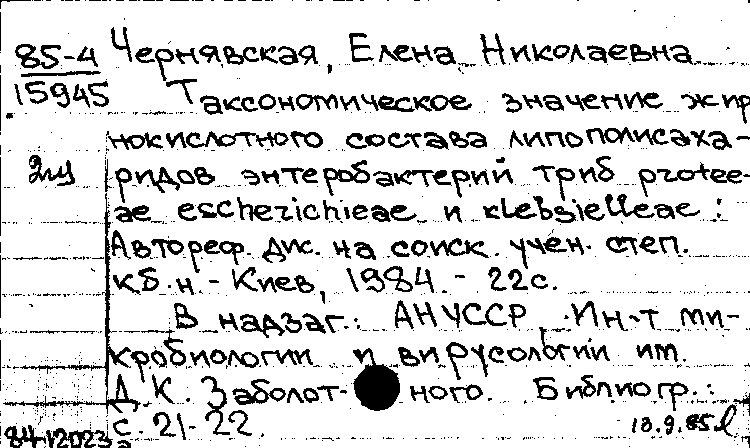 85-4 Чернявская, Елена Николаевна
15945 Таксономическое значение жир
нокислотного состава липополисаха-
2 из ридов энтеробактерий триб protee-
ae escherichieae и klebsielleae :
Автореф. дис. на соиск. учен. степ.
к.б.н. - Киев, 1984. - 22с.
В надзаг.: АН УССР, Ин-т ми-
кробиологии и вирусологии им.
Д.К. Заболотного. Библиогр.:
с. 21-22.
84-12023а
10.9.85